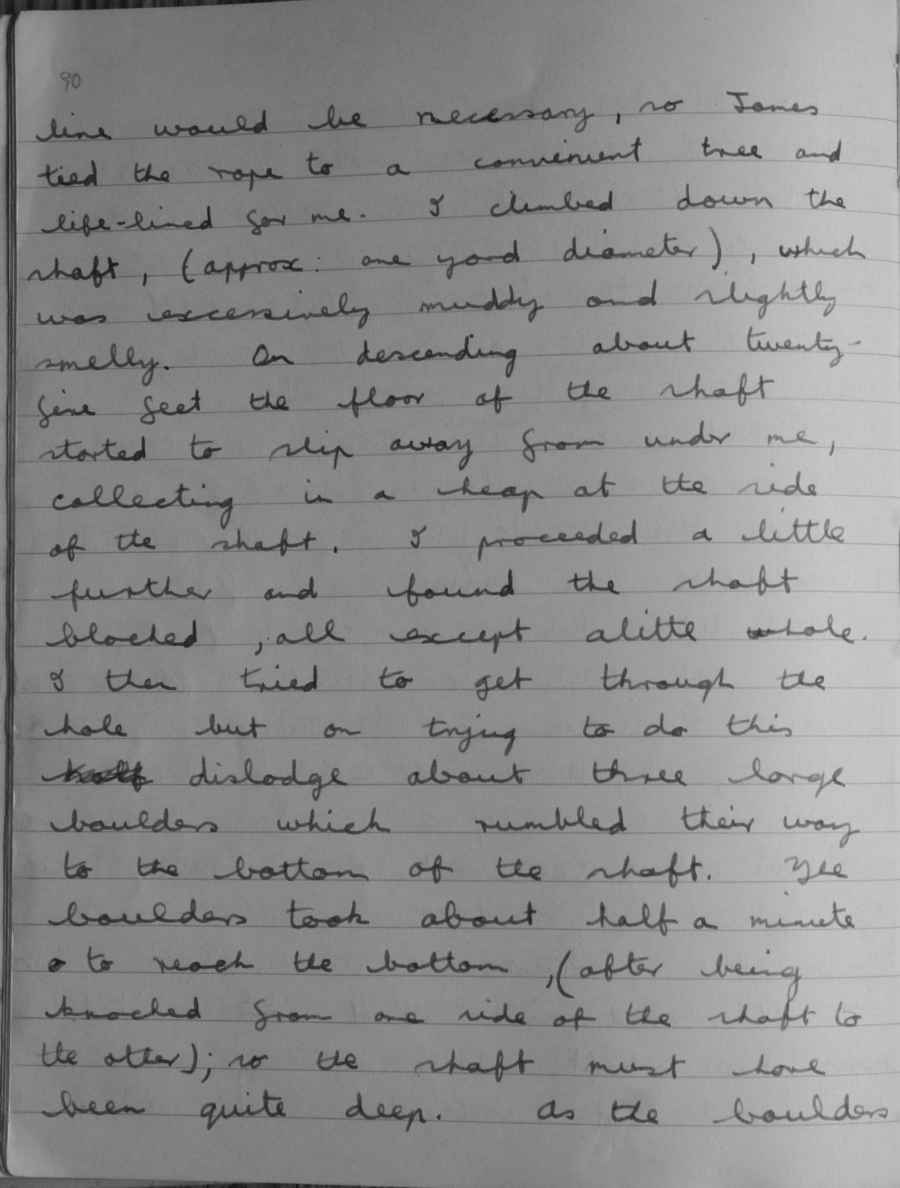 90
line would be necessary, so James
tied the rope to a convenient tree and
life-lined for me. I climbed down the
shaft, (approx: one yard diameter), which
was excessively muddy and slightly
smelly. On descending about twenty-
five feet the floor of the shaft
started to slip away from under me,
collecting in a heap at the side
of the shaft. I proceeded a little
further and found the shaft
blocked, all except alitte whole.
I then tried to get through the
hole but on trying to do this
dislodge about three large
boulders which rumbled their way
to the bottom of the shaft. The
boulders took about half a minute
to reach the bottom, (after being
knocked from one side of the shaft to
the other); so the shaft must have
been quite deep. As the boulders